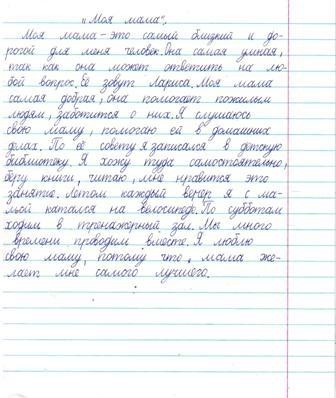 „Моя мама“.
Моя мама – это самый близкий и до-
рогой для меня человек. Она самая умная,
так как она может ответить на лю-
бой вопрос. Её зовут Лариса. Моя мама
самая добрая, она помогает пожилым
людям, заботится о них. Я слушаюсь
свою маму, помогаю ей в домашних
делах. По её совету я записался в детскую
библиотеку. Я хожу туда самостоятельно,
беру книги, читаю, мне нравится это
занятие. Летом каждый вечер я с ма-
мой катался на велосипеде. По субботам
ходили в тренажёрный зал. Мы много
времени проводим вместе. Я люблю
свою маму, потому что, мама же-
лает мне самого лучшего.